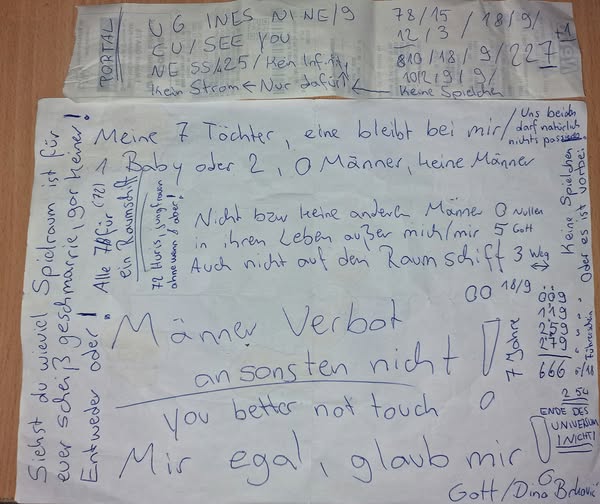 PORTAL
U G INES NINE/9
CU/SEE YOU
NE SS/
Kein Strom ← Nur dafür ←
78/15 / 18/9/
12/3 /
810/18/9/227
+1
10/2/9/9/
Keine Spielchen
Siehst du wieviel Spielraum ist für
euer scheiß geschmarrie, gar keiner!
Entweder oder!
Alle 78 für (72)
ein Raumschiff
72 Huris, Jungfrauen
ohne wenn & aber!
Meine 7 Töchter, eine bleibt bei mir/
Uns beiden
darf natürlich
nichts
1 Baby oder 2, 0 Männer, keine Männer
Nicht bzw keine anderen Männer 0 Nullen
in ihren Leben außer mich/mir 5 Gott
Auch nicht auf den Raumschiff 3 Weg
Keine Spielchen
Oder es ist vorbei.
Männer Verbot
ansonsten nicht
!
you better not touch
Mir egal, glaub mir
00 18/9
7 Jahre
009
119
666
254
ENDE DES
UNIVERSUM
NICHT!
Gott/Dino